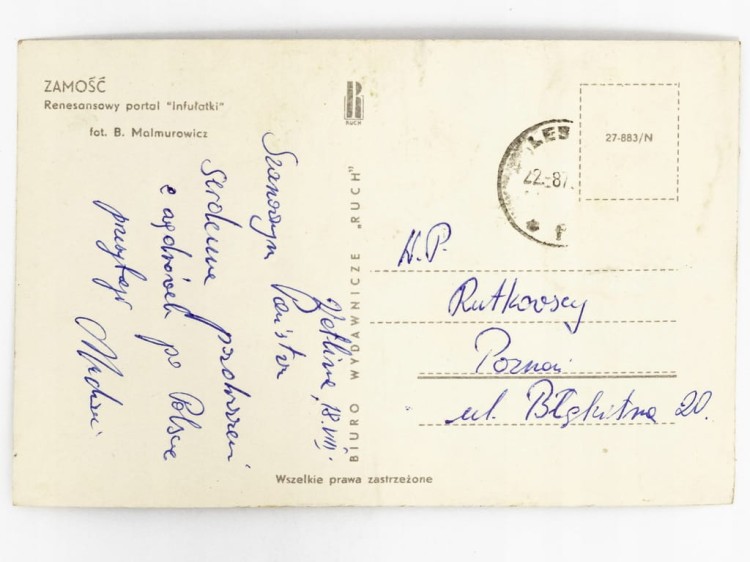 ZAMOŚĆ
Renesansowy portal "Infułatki"
fot. B. Malmurowicz
RUCH
BIURO WYDAWNICZE "RUCH"
27-883/N
LES
22.-87.
Wetlina, 18.VIII.
Szanownym Państwu
Serdeczne pozdrowień
z wędrówek po Polsce
przesyłają
W.P.
Rutkowscy
Poznań
ul. Błękitna 20.
Wszelkie prawa zastrzeżone